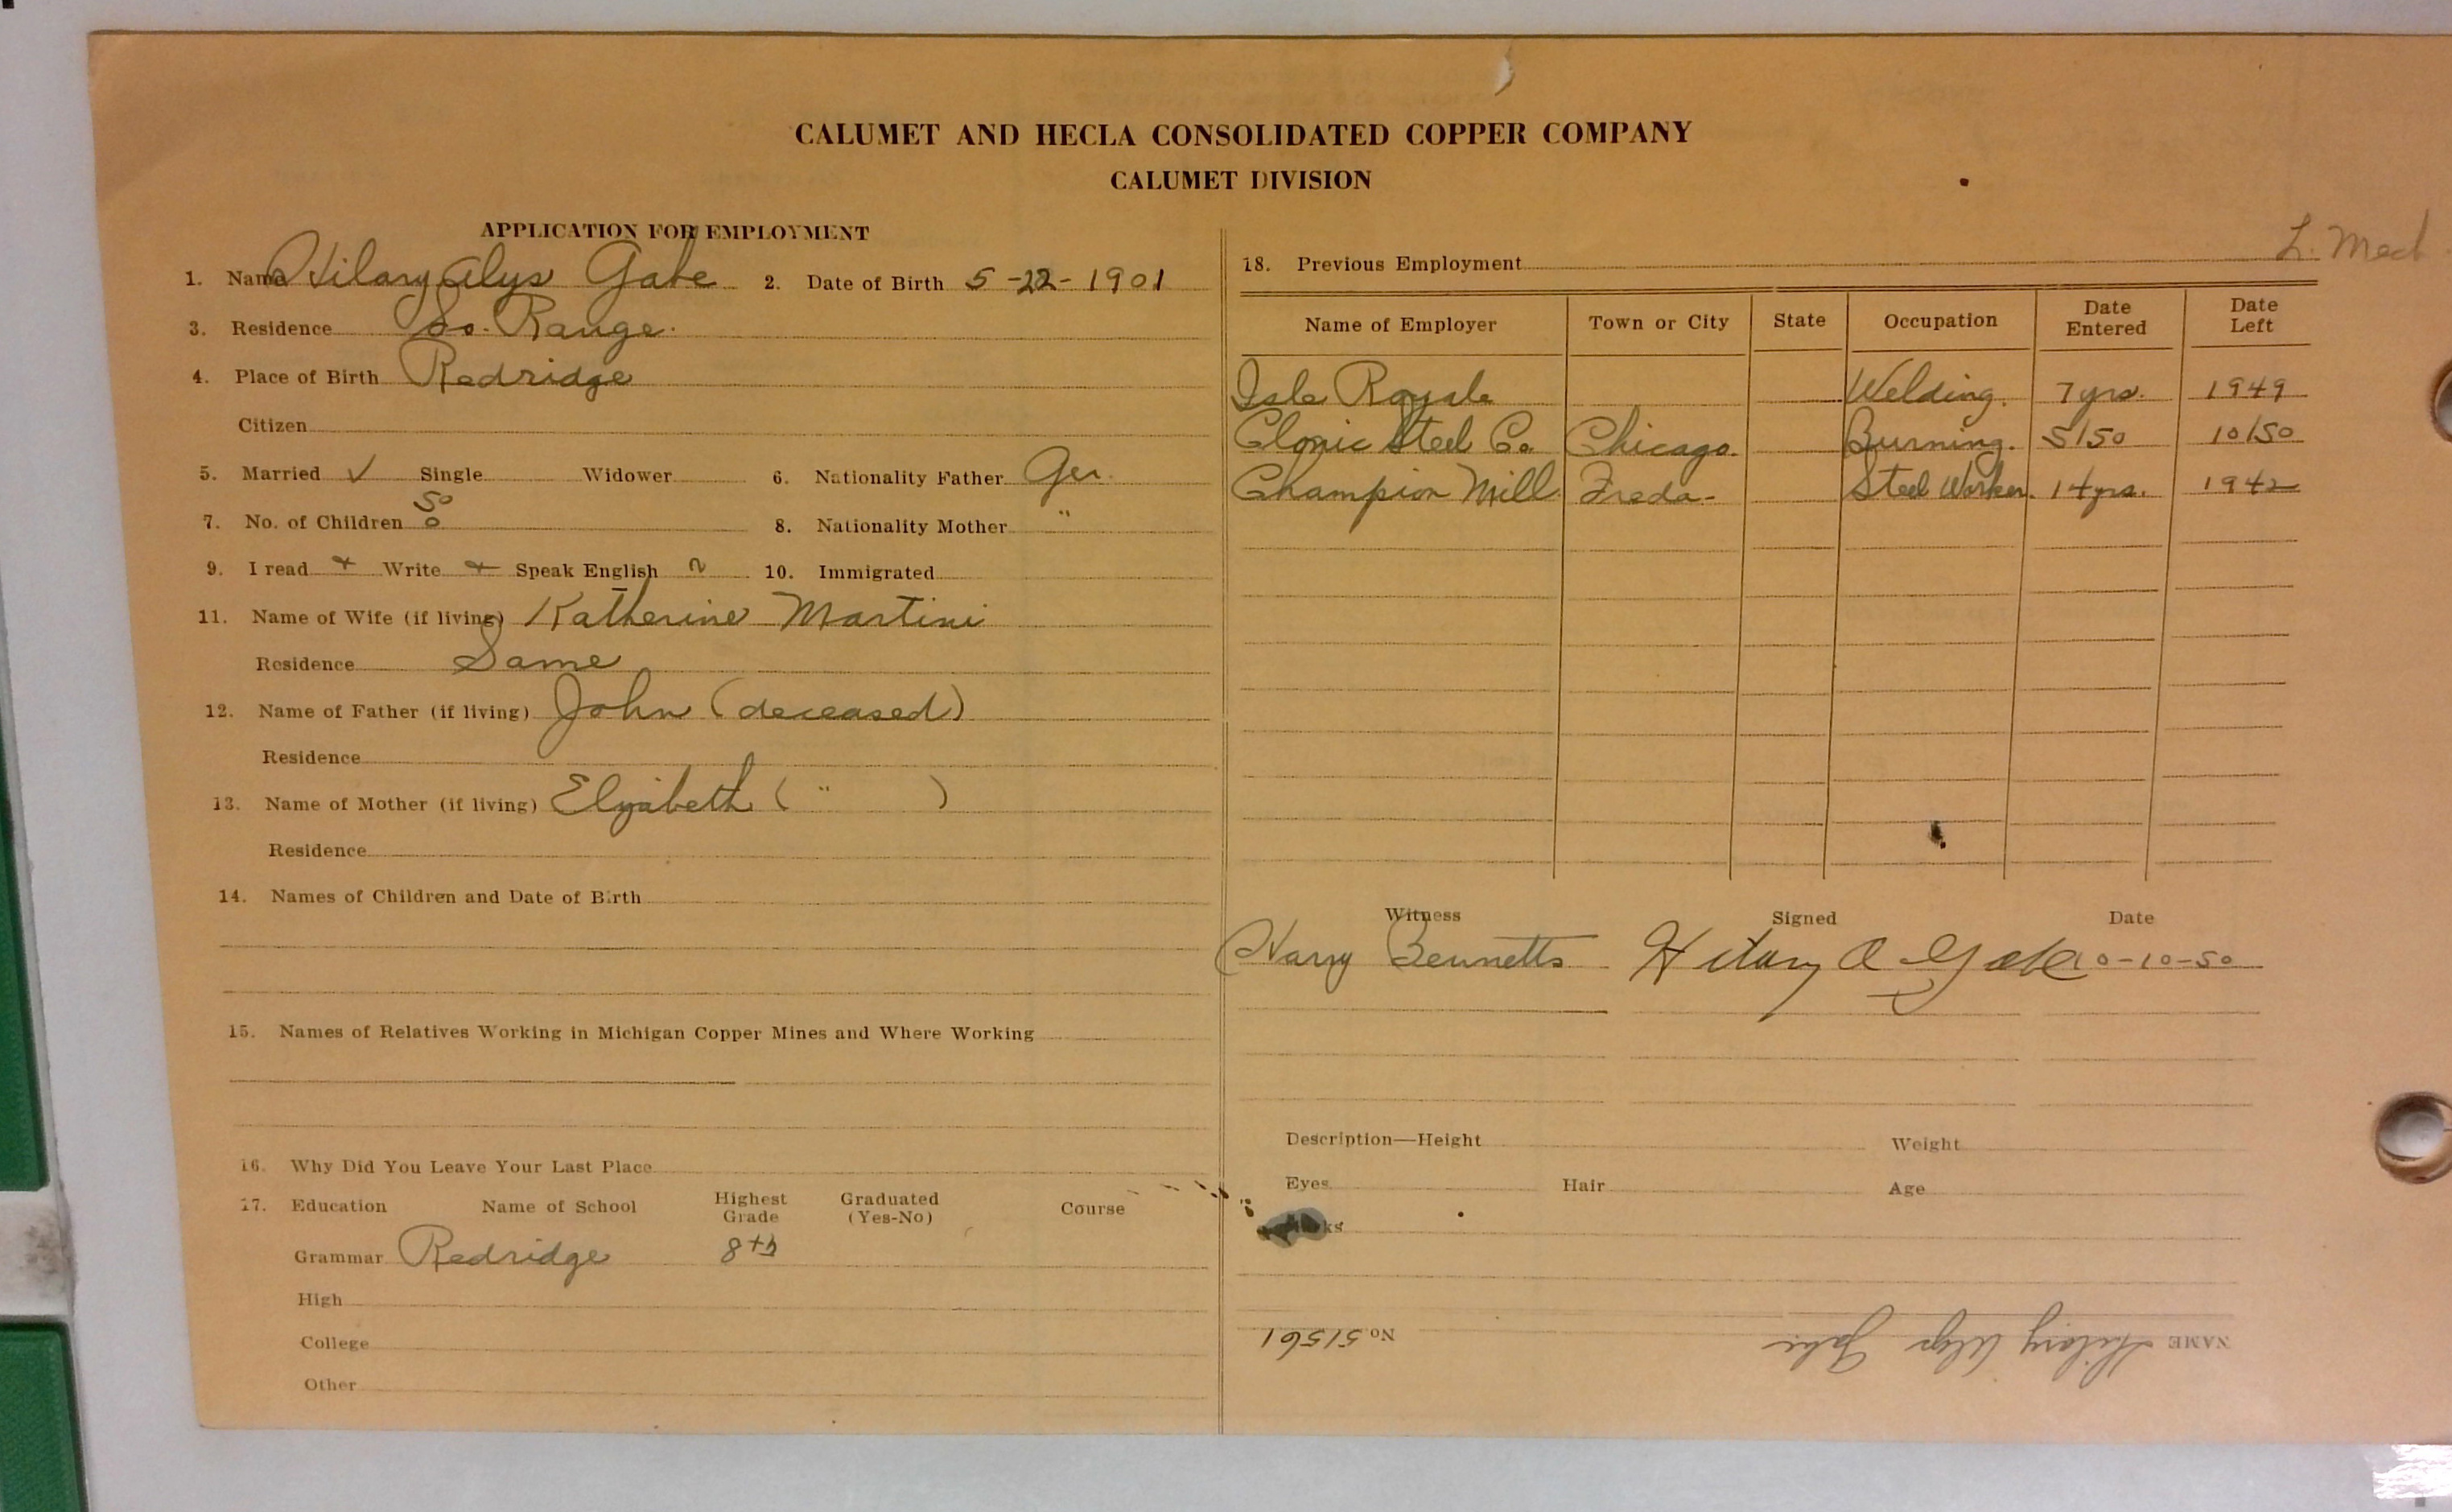 CALUMET AND HECLA CONSOLIDATED COPPER COMPANY
CALUMET DIVISION
APPLICATION FOR EMPLOYMENT
1. Name Hilary Alys Gabe 2. Date of Birth 5-22-1901
3. Residence So. Range.
4. Place of Birth Redridge
Citizen
5. Married ✓ Single Widower 6. Nationality Father Ger.
50
7. No. of Children 0 8. Nationality Mother "
9. I read Write Speak English 10. Immigrated
11. Name of Wife (if living) Katherine Martini
Residence Same
12. Name of Father (if living) John (deceased)
Residence
13. Name of Mother (if living) Elizabeth ( " )
Residence
14. Names of Children and Date of Birth
15. Names of Relatives Working in Michigan Copper Mines and Where Working
16. Why Did You Leave Your Last Place
17. Education Name of School Highest Grade Graduated (Yes-No) Course
Grammar Redridge 8th
High
College
Other
L. Med
18. Previous Employment
Name of Employer Town or City State Occupation Date Entered Date Left
Isle Royale Welding. 7 yrs. 1949
Steel Co Chicago. Burning. 5/50 10/50
Champion Mill Freda- Steel Worker. 14 yrs. 1942
Witness Signed Date
Harry Bennetts Hilary A Gabe 10-10-50
Description—Height Weight
Eyes Hair Age
NAME Hilary Alys Gabe No 51561